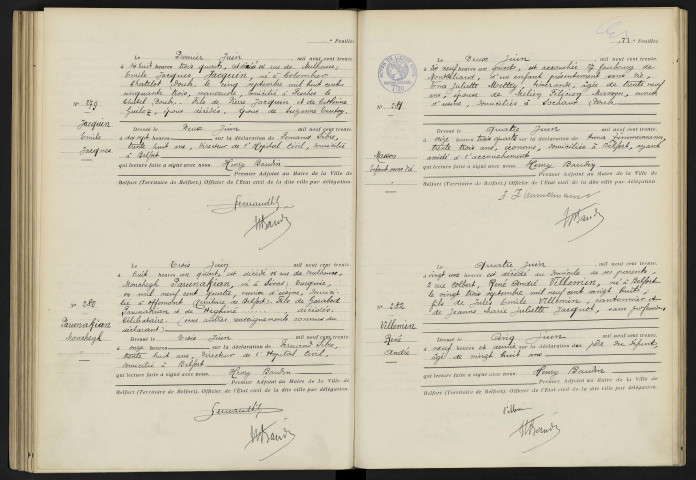 Feuillet
Le Premier Juin, mil neuf cent trente,
à huit heures trois quarts, est décédé rue de Mulhouse,
Emile Jacques Jacquin, né à Colombier
Chatelot, Doubs, le cinq septembre mil huit cent
cinquante trois, manœuvre, domicilié à
, Doubs, Fils de Pierre Jacquin et de Catherine
, époux décédés. Epoux de Suzanne
N° 279
Jacquin
Emile
Jacques
Dressé le Deux Juin, mil neuf cent trente,
à heures, sur la déclaration de Fernand Sibre,
trente huit ans, Directeur de l'Hôpital Civil, domicilié
à Belfort
qui lecture faite a signé avec nous, Henry Baudin
Premier Adjoint au Maire de la Ville de
Belfort (Territoire de Belfort), Officier de l'Etat civil de la dite ville par délégation.
Le Trois Juin, mil neuf cent trente,
à huit heures un quart, est décédé rue de Mulhouse,
Monchegh Parunakian, né à Sivas, Turquie,
en mil neuf cent quatre, ouvrier d'usine, domicilié
à Offemont (Territoire de Belfort). Fils de
Parunakian et de décédés.
Célibataire. (sans autres renseignements connus du
déclarant)
N° 280
Parunakian
Monchegh
Dressé le Trois Juin, mil neuf cent trente,
à heures, sur la déclaration de Fernand Sibre,
trente huit ans, Directeur de l'Hôpital Civil,
domicilié à Belfort
qui lecture faite a signé avec nous, Henry Baudin
Premier Adjoint au Maire de la Ville de
Belfort (Territoire de Belfort), Officier de l'Etat civil de la dite ville par délégation.
71 Feuillet
Le Deux Juin, mil neuf cent trente,
à dix neuf heures un quart, est accouchée 27 faubourg de
Montbéliard, d'un enfant présentement sans vie,
Ena Juliette Mettey, âgée de trente neuf
ans, épouse de Masson, ouvrier
d'usine, domiciliés à Sochaux, Doubs.
N° 281
Masson
Enfant sans vie
Dressé le Quatre Juin, mil neuf cent trente,
à seize heures trois quarts, sur la déclaration de Anna Zimmermann,
trente trois ans, économe, domiciliée à Belfort, ayant
assisté à l'accouchement
qui lecture faite a signé avec nous, Henry Baudin
Premier Adjoint au Maire de la Ville de
Belfort (Territoire de Belfort), Officier de l'Etat civil de la dite ville par délégation.
Zimmermann
Le Quatre Juin, mil neuf cent trente,
à vingt heures est décédé au domicile de ses parents,
2 rue Colbert, René André Villemin, né à Belfort
le vingt trois septembre mil neuf cent vingt huit,
fils de Jules Emile Villemin, cantonnier et
de Jeanne Marie Juliette Jacquot, sans profession.
N° 282
Villemin
René
André
Dressé le Cinq Juin, mil neuf cent trente,
à neuf heures et demie sur la déclaration du père du défunt,
âgé de vingt huit ans
qui lecture faite a signé avec nous, Henry Baudin
Premier Adjoint au Maire de la Ville de
Belfort (Territoire de Belfort), Officier de l'Etat civil de la dite ville par délégation.